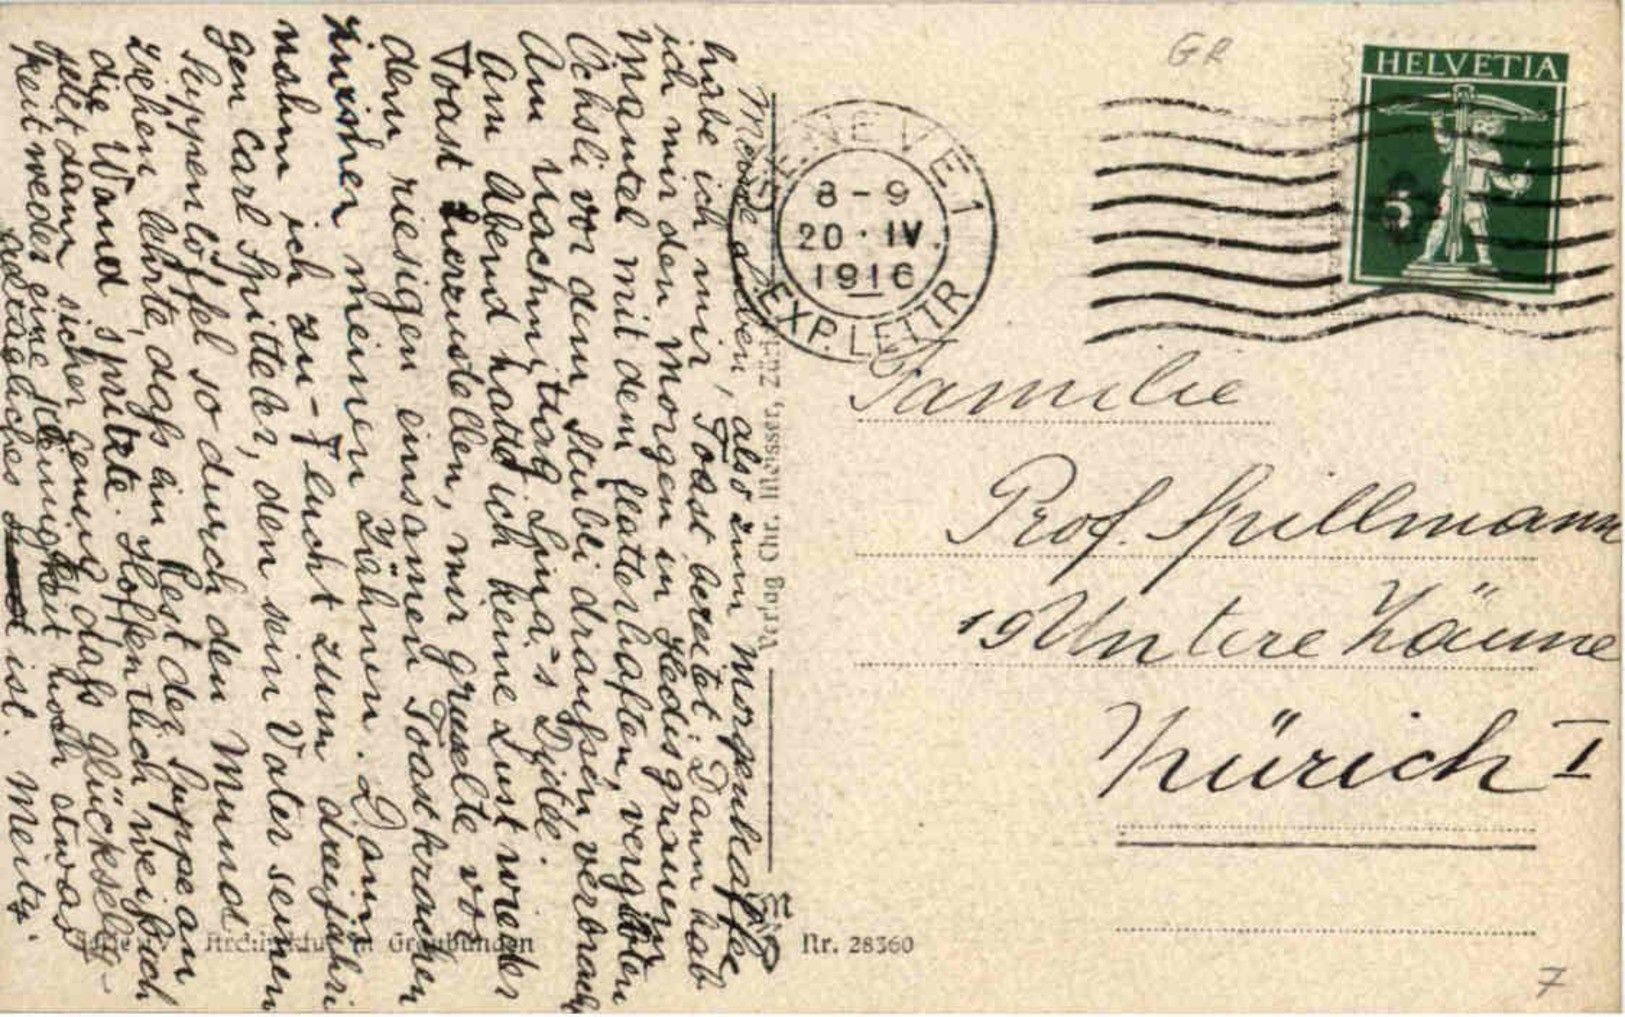 Meine Lieben, also zum Morgenkaffee
habe ich mir Toast bereitet. Dann hab
ich mir den Morgen in Hedis grauem
Mantel mit dem flatterhaften,
Öchsli vor dem Stübli draußen verbracht
Am Nachmittag Lina's Visite.
Am Abend hatte ich keine Lust wieder
Toast herzustellen, mir gruselte vor
dem riesigen einsamen Toastkrachen
zwischen meinen Zähnen. Dann
nahm ich Zu-Flucht zum dreijähri
gen Carl Spitteler, den sein Vater seinen
Suppenlöffel so durch den Mund
ziehen lehrte, daß ein Rest der Suppe an
die Wand spritzte. Hoffentlich weiß ich
jetzt dann sicher genug daß Glückselig-
keit weder eine noch etwas
alltägliches ist. Meity.
GR
HELVETIA
5
GENÈVE 1
8-9
20.IV.
1916
EXP. LETTR
Familie
Prof. Spillmann
19 Untere Zäune
Zürich I
Verlag Chr. Meisser, Zürich
in Graubünden
Nr. 28360
7